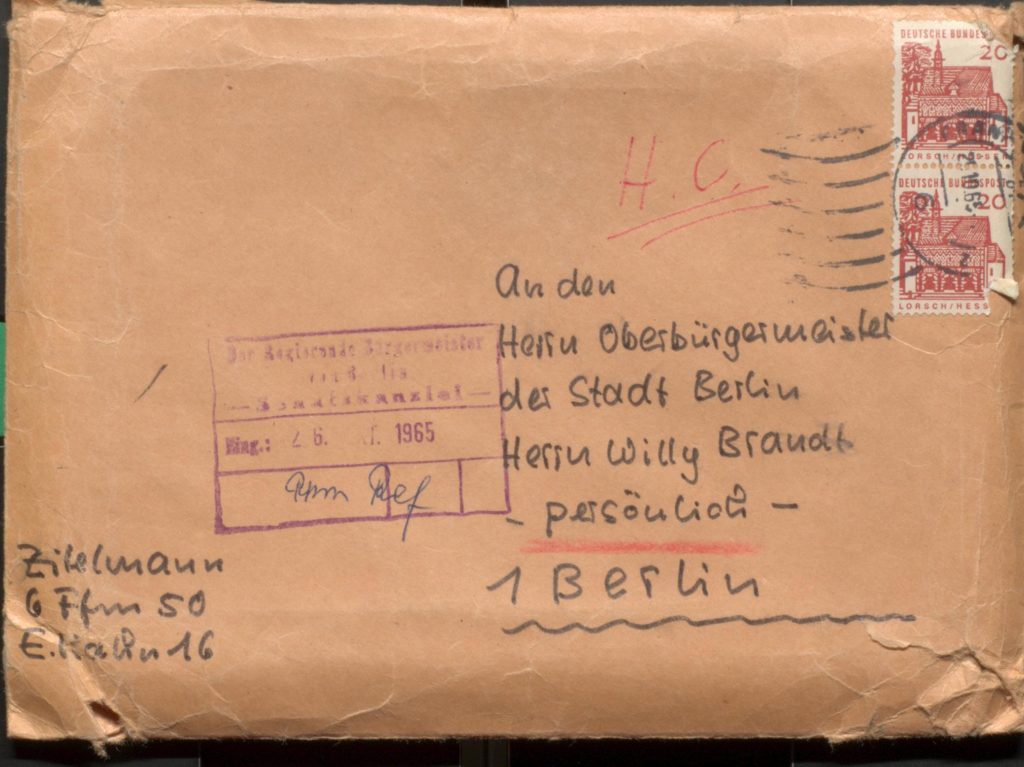 DEUTSCHE BUNDES
20
LORSCH/HESSEN
DEUTSCHE BUNDESPOST
20
LORSCH/HESS
H. C.
An den
Herrn Oberbürgermeister
der Stadt Berlin
Herrn Willy Brandt
- persönlich -
1 Berlin
Der Regierende Bürgermeister
von Berlin
— Senatskanzlei —
Eing.: 26. 1965
Zitelmann
6 Ffm 50
E. Kahn 16